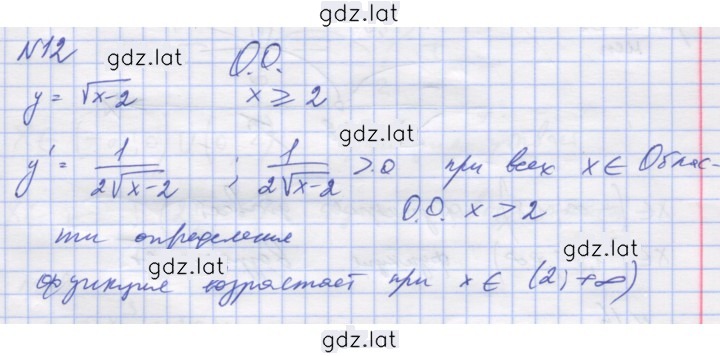 gdz.lat
N12 gdz.lat O.O.
y = √x-2 x ≥ 2
gdz.lat
y' = 1/2√x-2 ; 1/2√x-2 > 0 при всех x ∈ Облас-
O.O. x > 2
ти определения
gdz.lat gdz.lat
функция возрастает при x ∈ (2; +∞)
gdz.lat